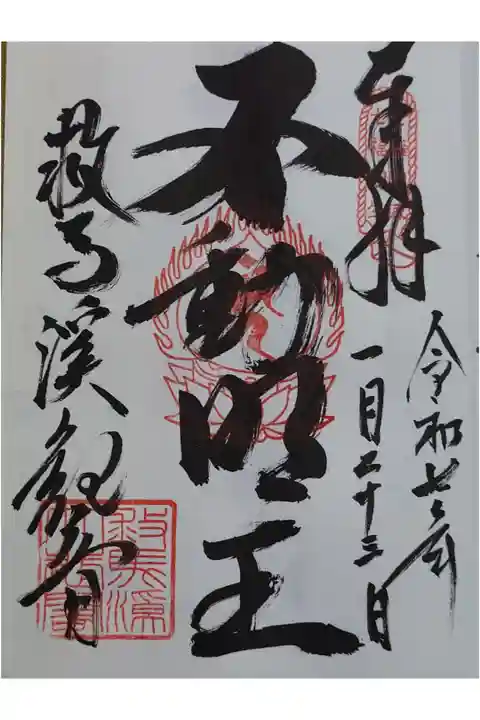 奉拝
令和七年
一月二十三日
不動明王
救馬溪観音